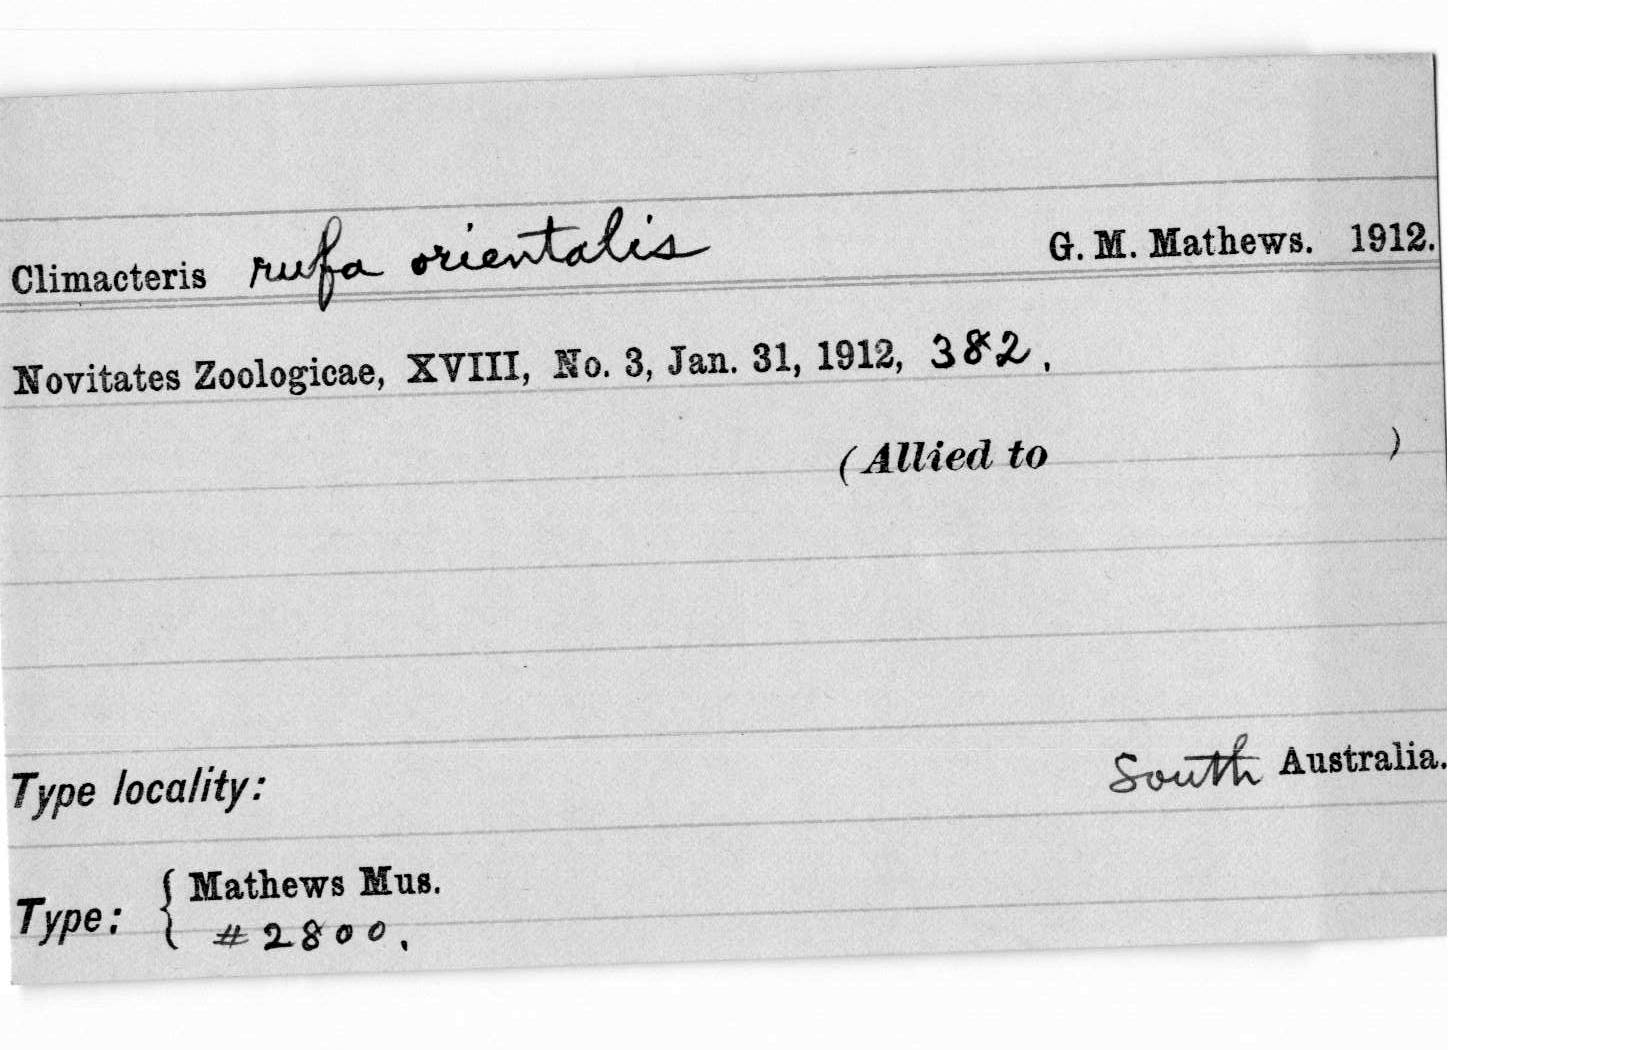 Climacteris rufa orientalis G. M. Mathews. 1912.
Novitates Zoologicae, XVIII, No. 3, Jan. 31, 1912, 382.
(Allied to )
Type locality: South Australia.
Type: { Mathews Mus.
#2800.